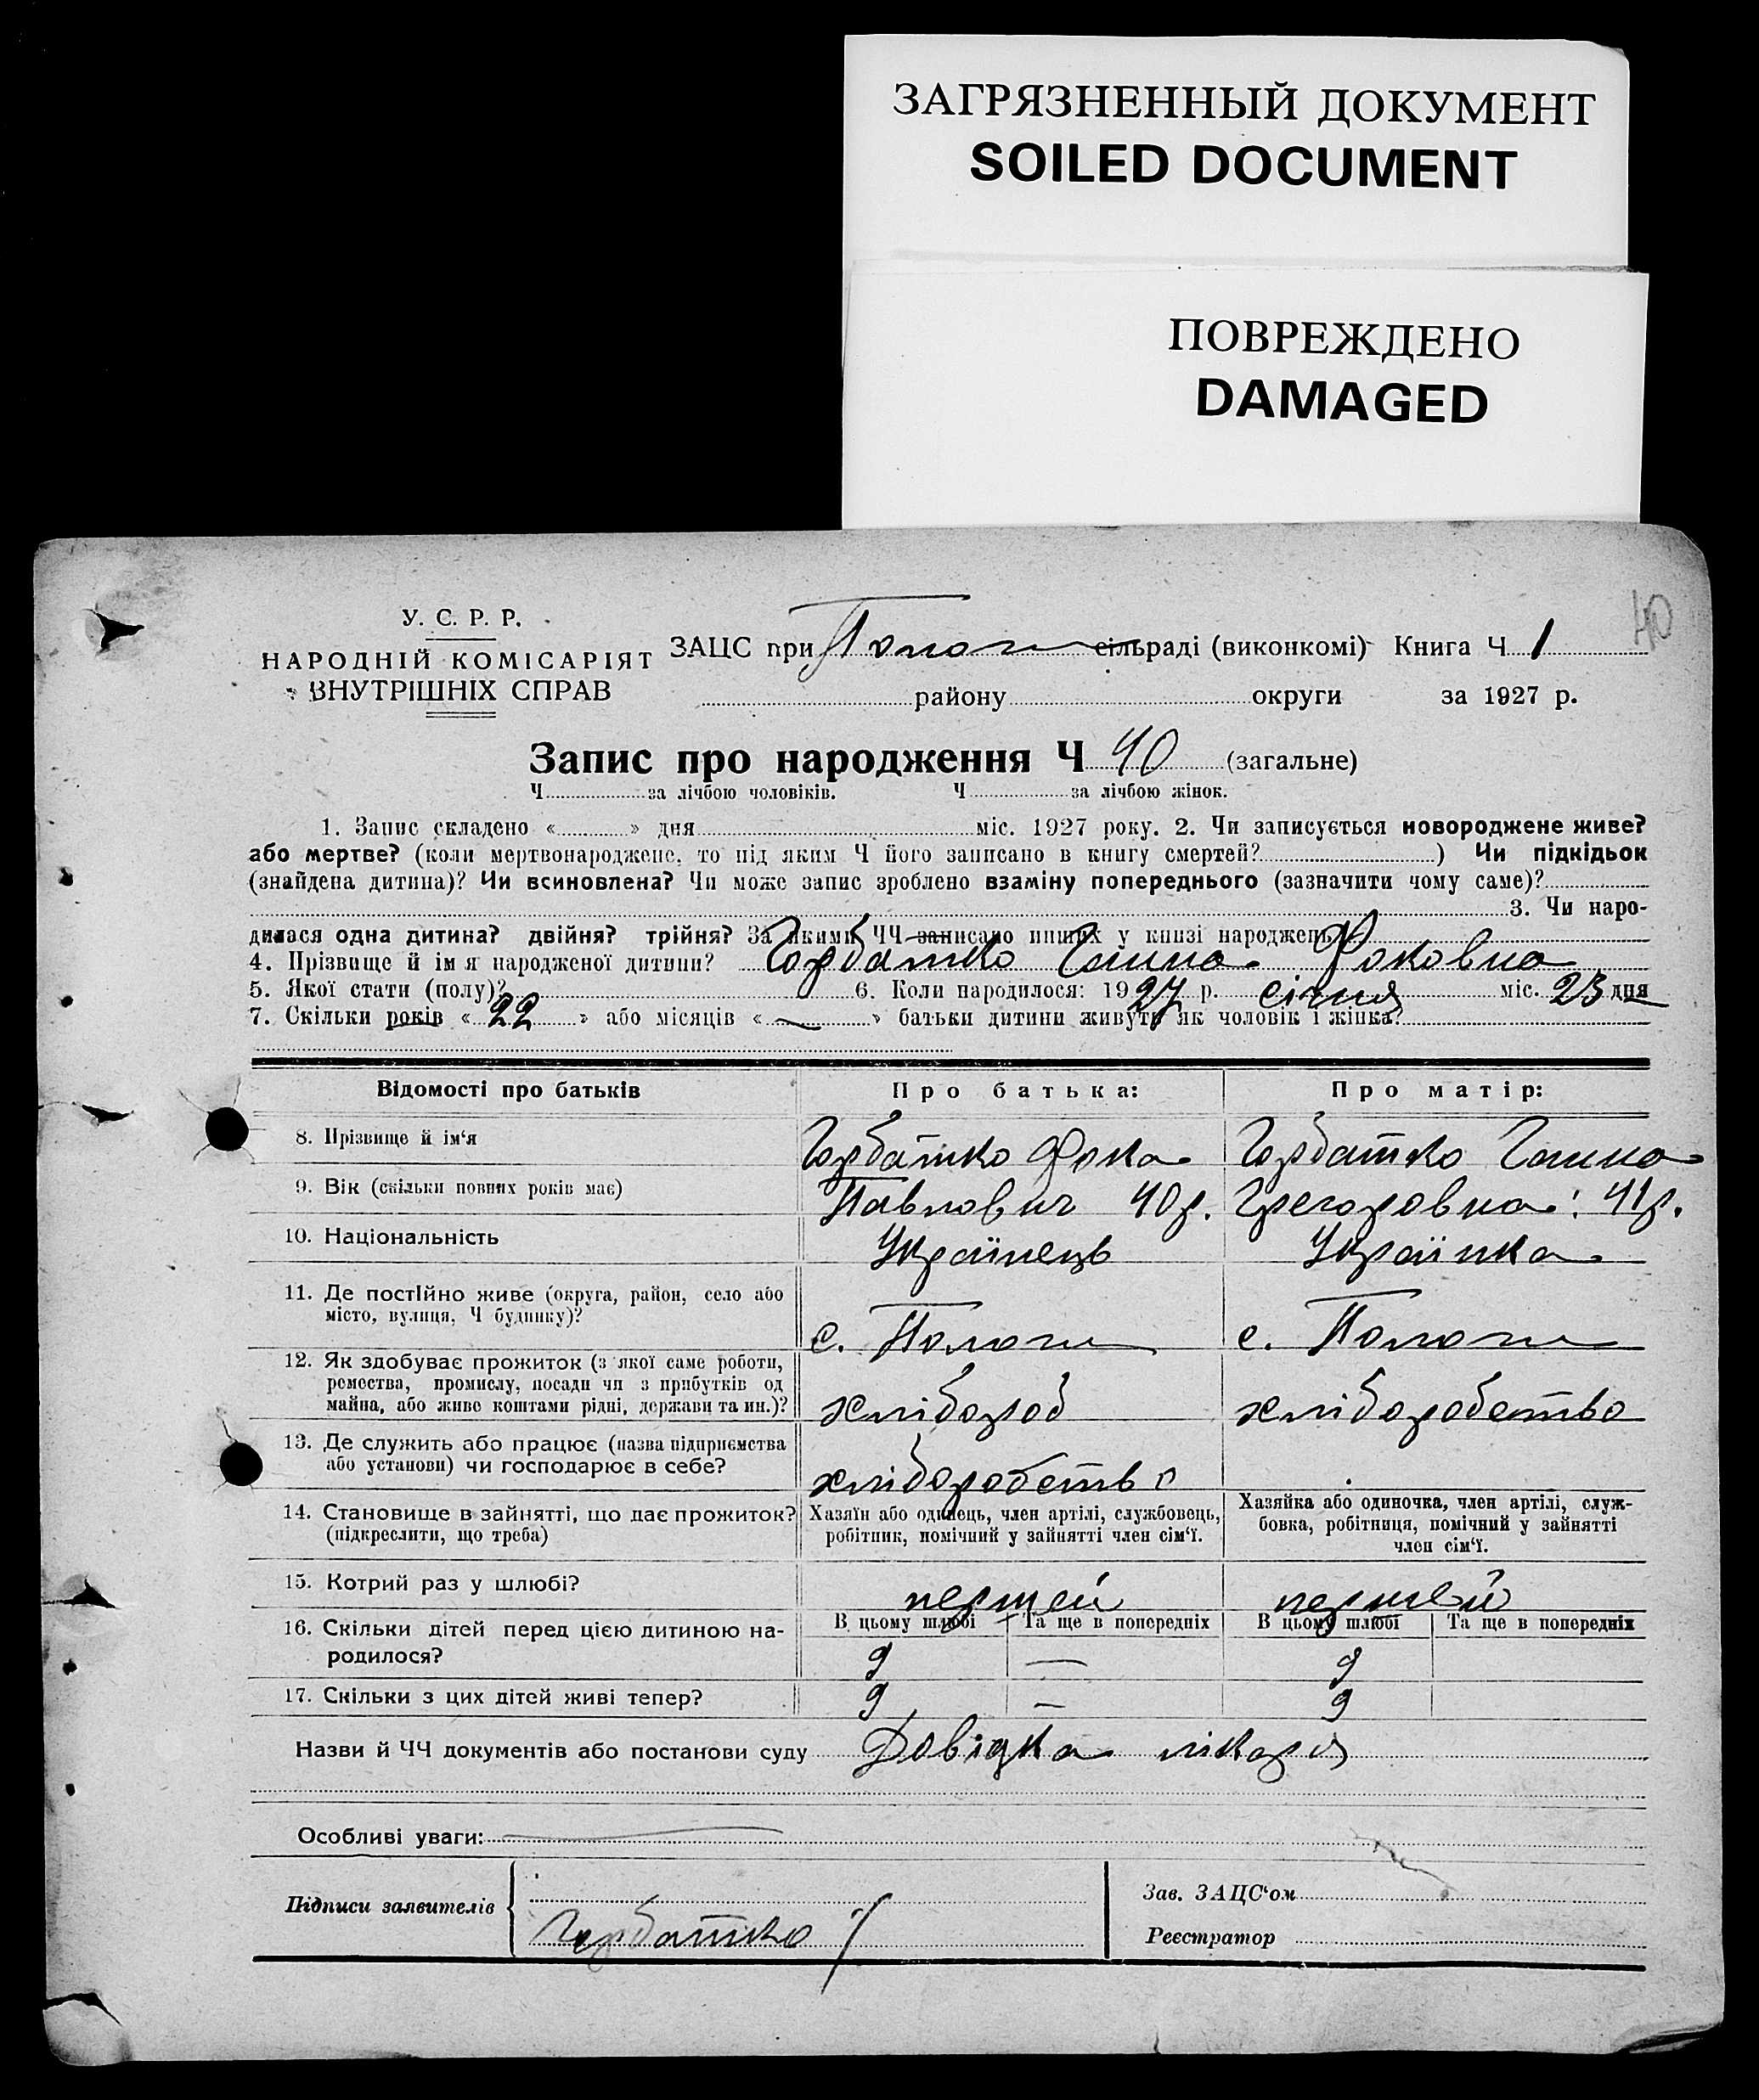 ЗАГРЯЗНЕННЫЙ ДОКУМЕНТ
SOILED DOCUMENT
ПОВРЕЖДЕНО
DAMAGED
40
У. С. Р. Р.
НАРОДНІЙ КОМІСАРІЯТ
ВНУТРІШНІХ СПРАВ
ЗАЦС при Пологи сільраді (виконкомі) Книга Ч 1
району округи за 1927 р.
Запис про народження Ч 40 (загальне)
Ч за лічбою чоловіків. Ч за лічбою жінок.
1. Запис складено « » дня міс. 1927 року. 2. Чи записується новороджене живе?
або мертве? (коли мертвонароджене, то під яким Ч його записано в книгу смертей? ) Чи підкідьок
(знайдена дитина)? Чи всиновлена? Чи може запис зроблено взаміну попереднього (зазначити чому саме)?
3. Чи наро-
дилася одна дитина? двійня? трійня? За якими ЧЧ записано инших у книзі народжень?
4. Прізвище й ім'я народженої дитини? Горбатко Ганна Фоковна
5. Якої стати (полу)? 6. Коли народилося: 1927 р. січня міс. 23 дня
7. Скільки років « 22 » або місяців « — » батьки дитини живуть як чоловік і жінка?
Відомості про батьків Про батька: Про матір:
8. Прізвище й ім'я Горбатко Фока Горбатко Ганна
9. Вік (скільки повних років має) Павлович 40 р. Грегоровна: 41 р.
10. Національність Українець Українка
11. Де постійно живе (округа, район, село або
місто, вулиця, Ч будинку)? с. Пологи с. Пологи
12. Як здобуває прожиток (з якої саме роботи,
ремества, промислу, посади чи з прибутків од
майна, або живе коштами рідні, держави та ин.)? хлібороб хліборобство
13. Де служить або працює (назва підприємства
або установи) чи господарює в себе? хліборобство
14. Становище в зайнятті, що дає прожиток?
(підкреслити, що треба)
Хазяїн або одинець, член артілі, службовець,
робітник, помічний у зайнятті член сім'ї.
Хазяйка або одиночка, член артілі, служ-
бовка, робітниця, помічний у зайнятті
член сім'ї.
15. Котрий раз у шлюбі? першей першей
16. Скільки дітей перед цією дитиною на-
родилося?
В цьому шлюбі Та ще в попередніх В цьому шлюбі Та ще в попередніх
9 — 9
17. Скільки з цих дітей живі тепер? 9 — 9
Назви й ЧЧ документів або постанови суду Довідка лікаря
Особливі уваги:
Підписи заявителів
Горбатко
Зав. ЗАЦС'ом
Реєстратор